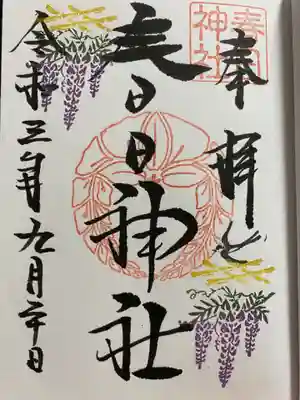 奉拝
春日神社
春日神社
令和三年九月二十日